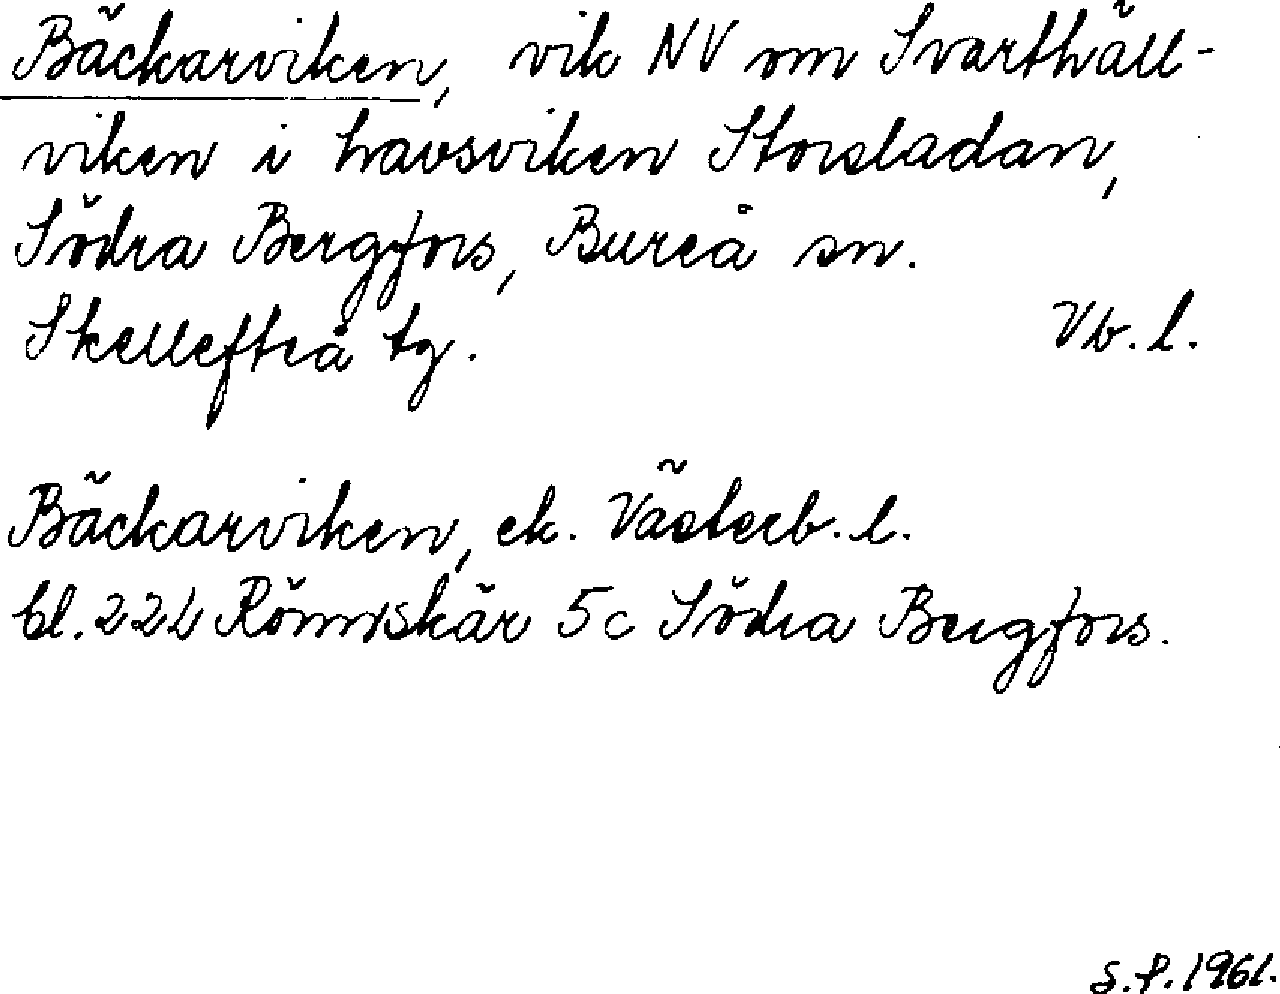 Bäckarviken, vik NV om Svarthäll-
viken i havsviken Storsladan,
Södra Bergfors, Bureå sn.
Skellefteå tg. Vb. l.
Bäckarviken, ek. Västerb. l.
bl. 22L Rönnskär 5c Södra Bergfors.
S. P. 1961.